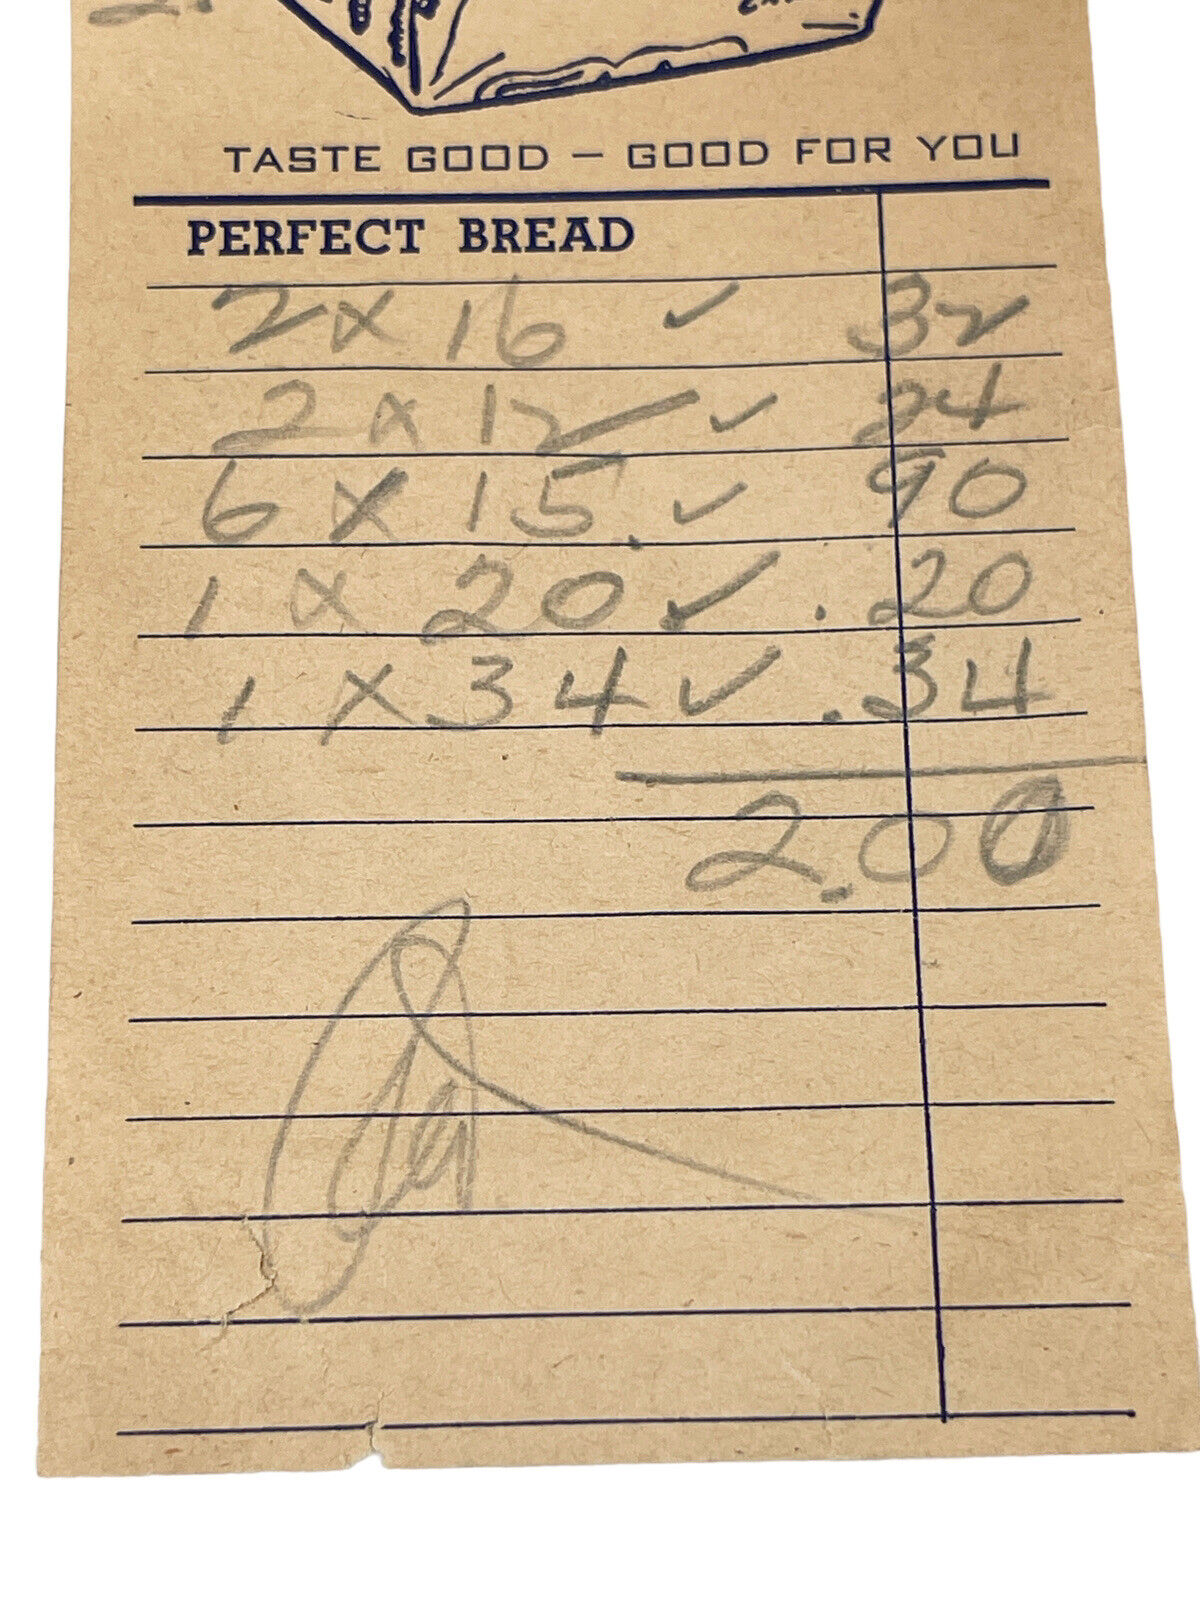 TASTE GOOD – GOOD FOR YOU
PERFECT BREAD
2 x 16 ✓ 32
2 x 12 ✓ 24
6 x 15. ✓ 90
1 x 20 ✓ .20
1 x 34 ✓ .34
2.00